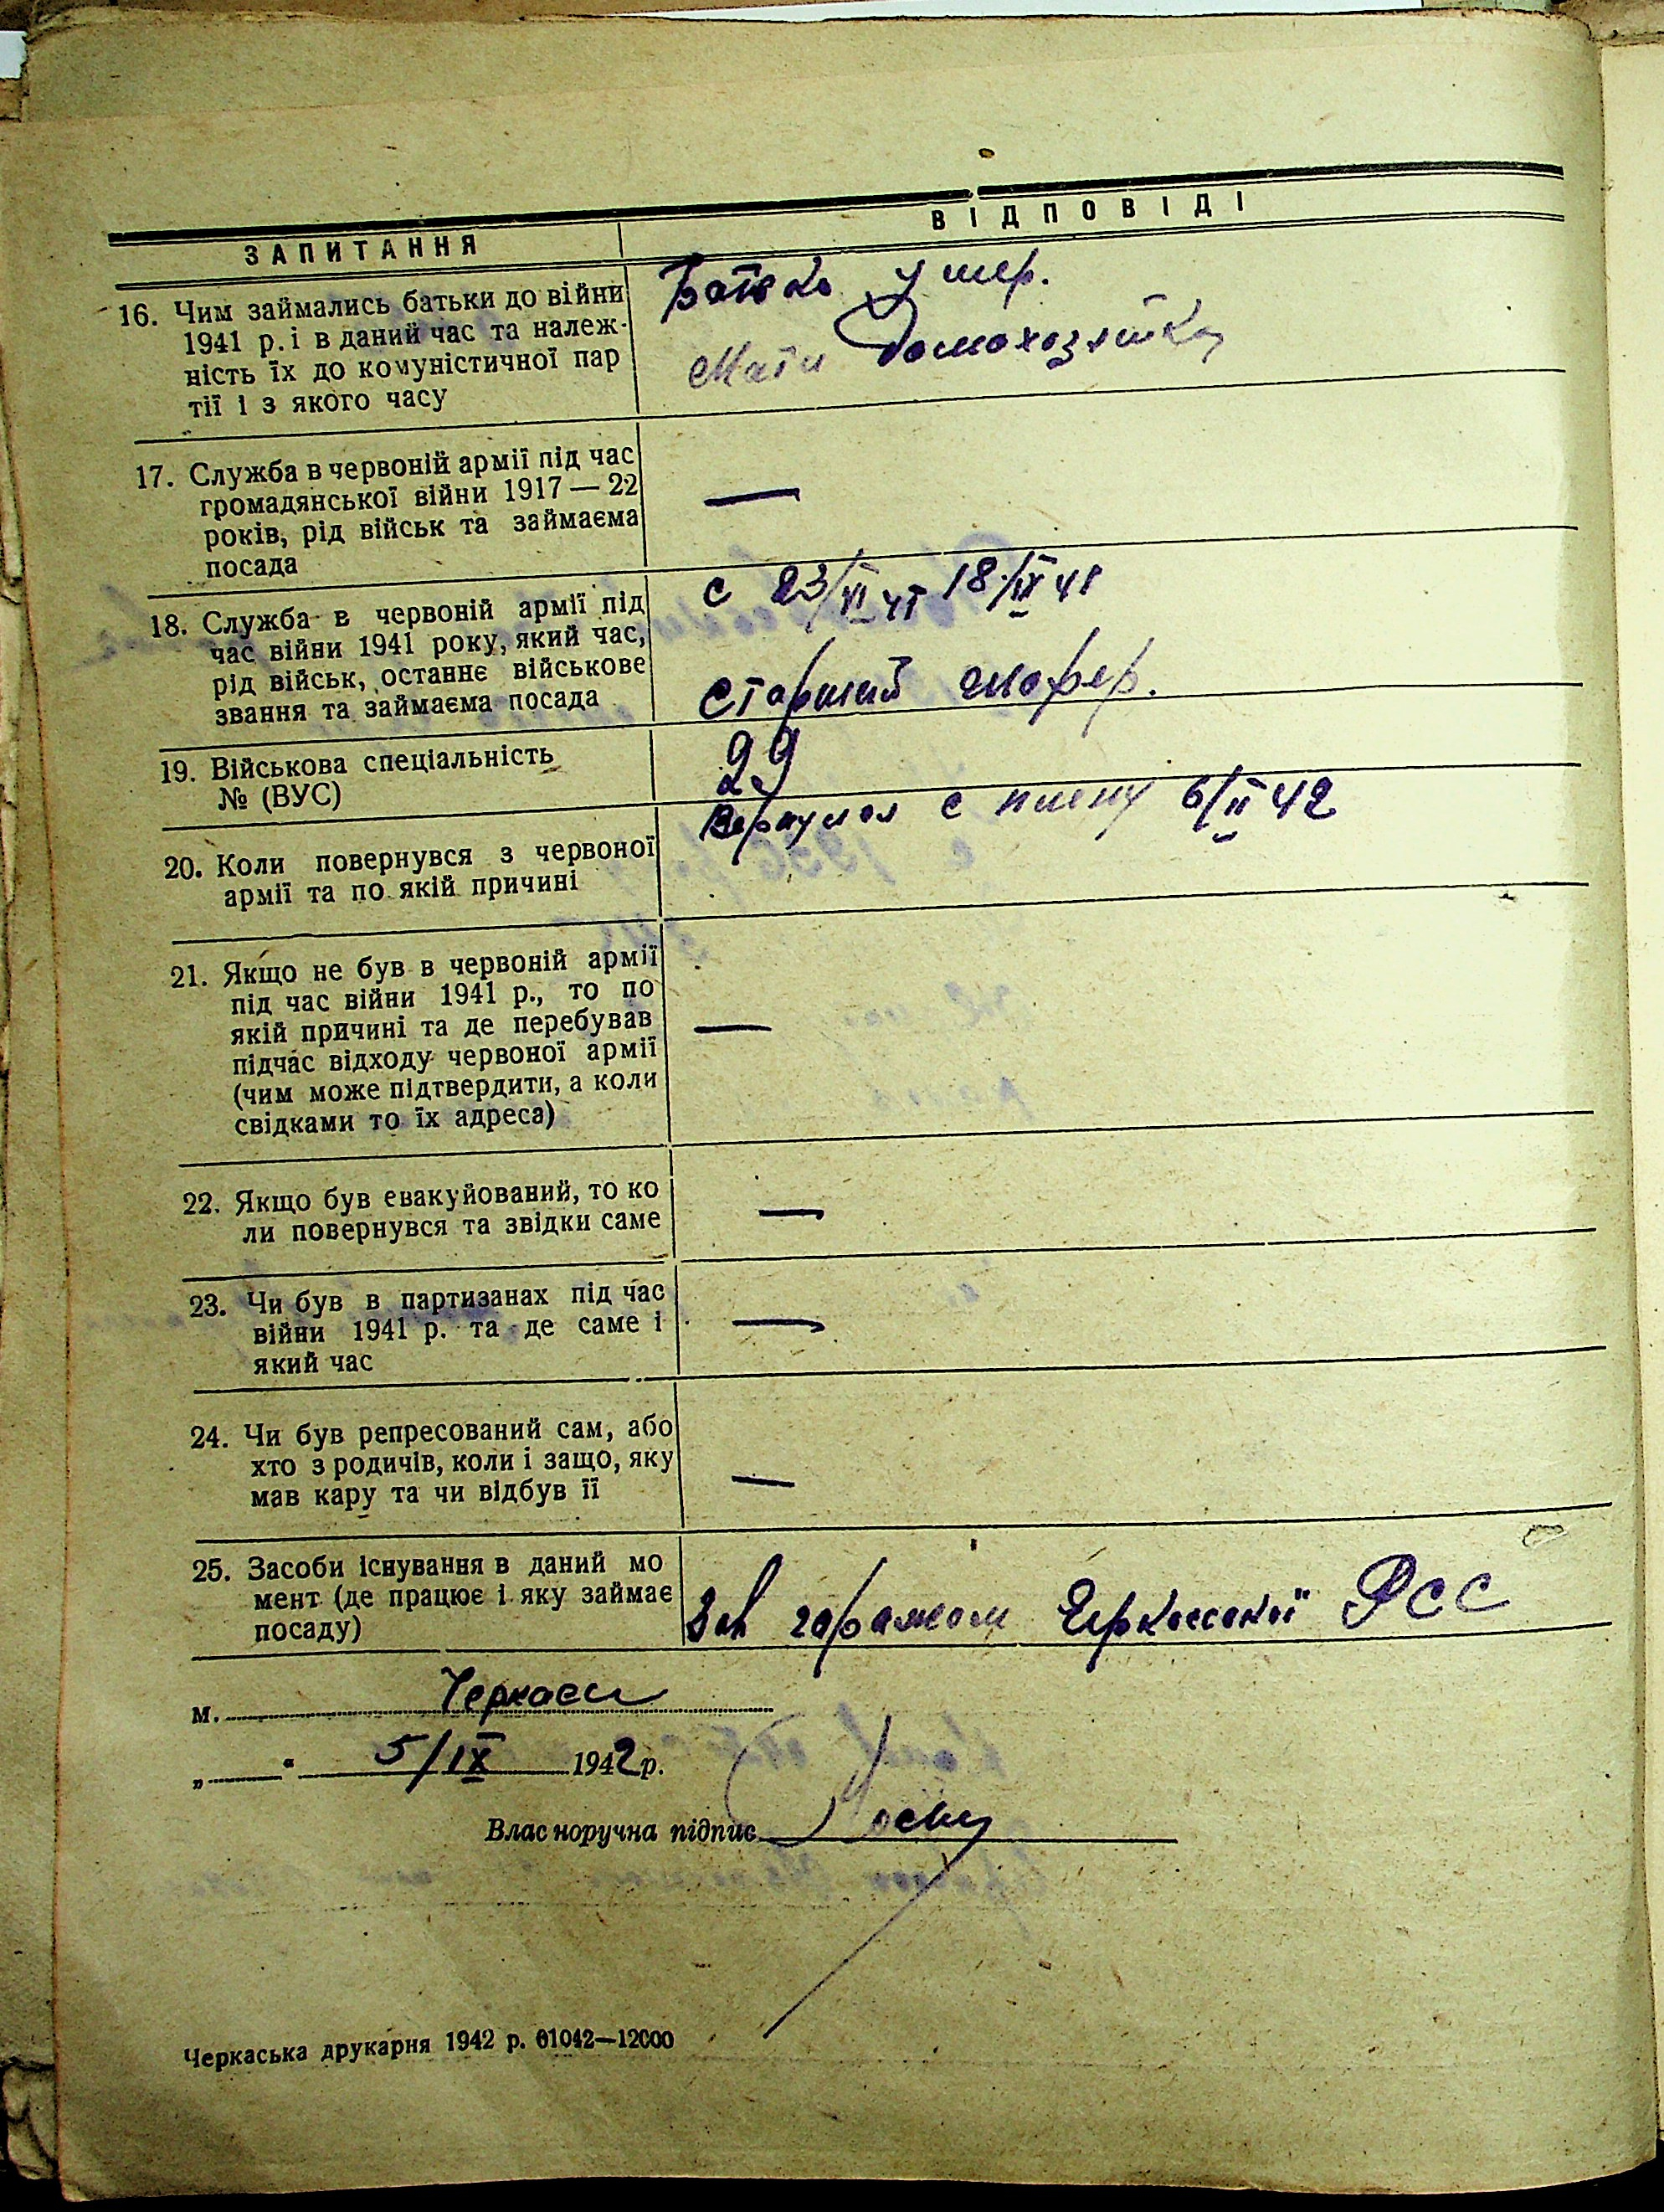 ЗАПИТАННЯ
ВІДПОВІДІ
16. Чим займались батьки до війни
1941 р. і в даний час та належ-
ність їх до комуністичної пар
тії і з якого часу
Батько умер.
Мати домохозяйка
17. Служба в червоній армії під час
громадянської війни 1917 — 22
років, рід військ та займаєма
посада
—
18. Служба в червоній армії під
час війни 1941 року, який час,
рід військ, останнє військове
звання та займаєма посада
с 23/VI 41 18/IX 41
Старший шофер.
19. Військова спеціальність
№ (ВУС)
29
20. Коли повернувся з червоної
армії та по якій причині
Вернулся с плену 6/II 42
21. Якщо не був в червоній армії
під час війни 1941 р., то по
якій причині та де перебував
підчас відходу червоної армії
(чим може підтвердити, а коли
свідками то їх адреса)
—
22. Якщо був евакуйований, то ко
ли повернувся та звідки саме
—
23. Чи був в партизанах під час
війни 1941 р. та де саме і
який час
—
24. Чи був репресований сам, або
хто з родичів, коли і защо, яку
мав кару та чи відбув її
—
25. Засоби існування в даний мо
мент (де працює і яку займає
посаду)
Зав гаражом Черкасской РСС
м. Черкасы
„ “ 5/IX 1942 р.
Власноручна підпис
Черкаська друкарня 1942 р. 01042—12000